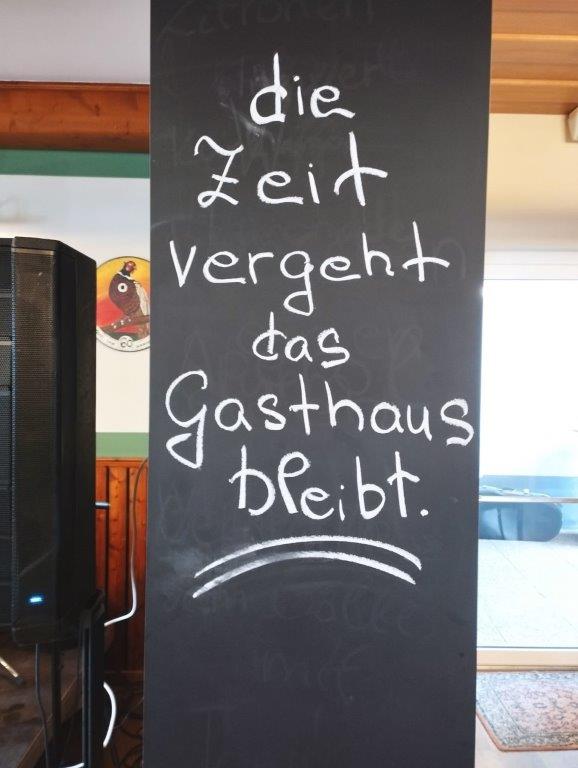 die
Zeit
vergeht
das
Gasthaus
bleibt.